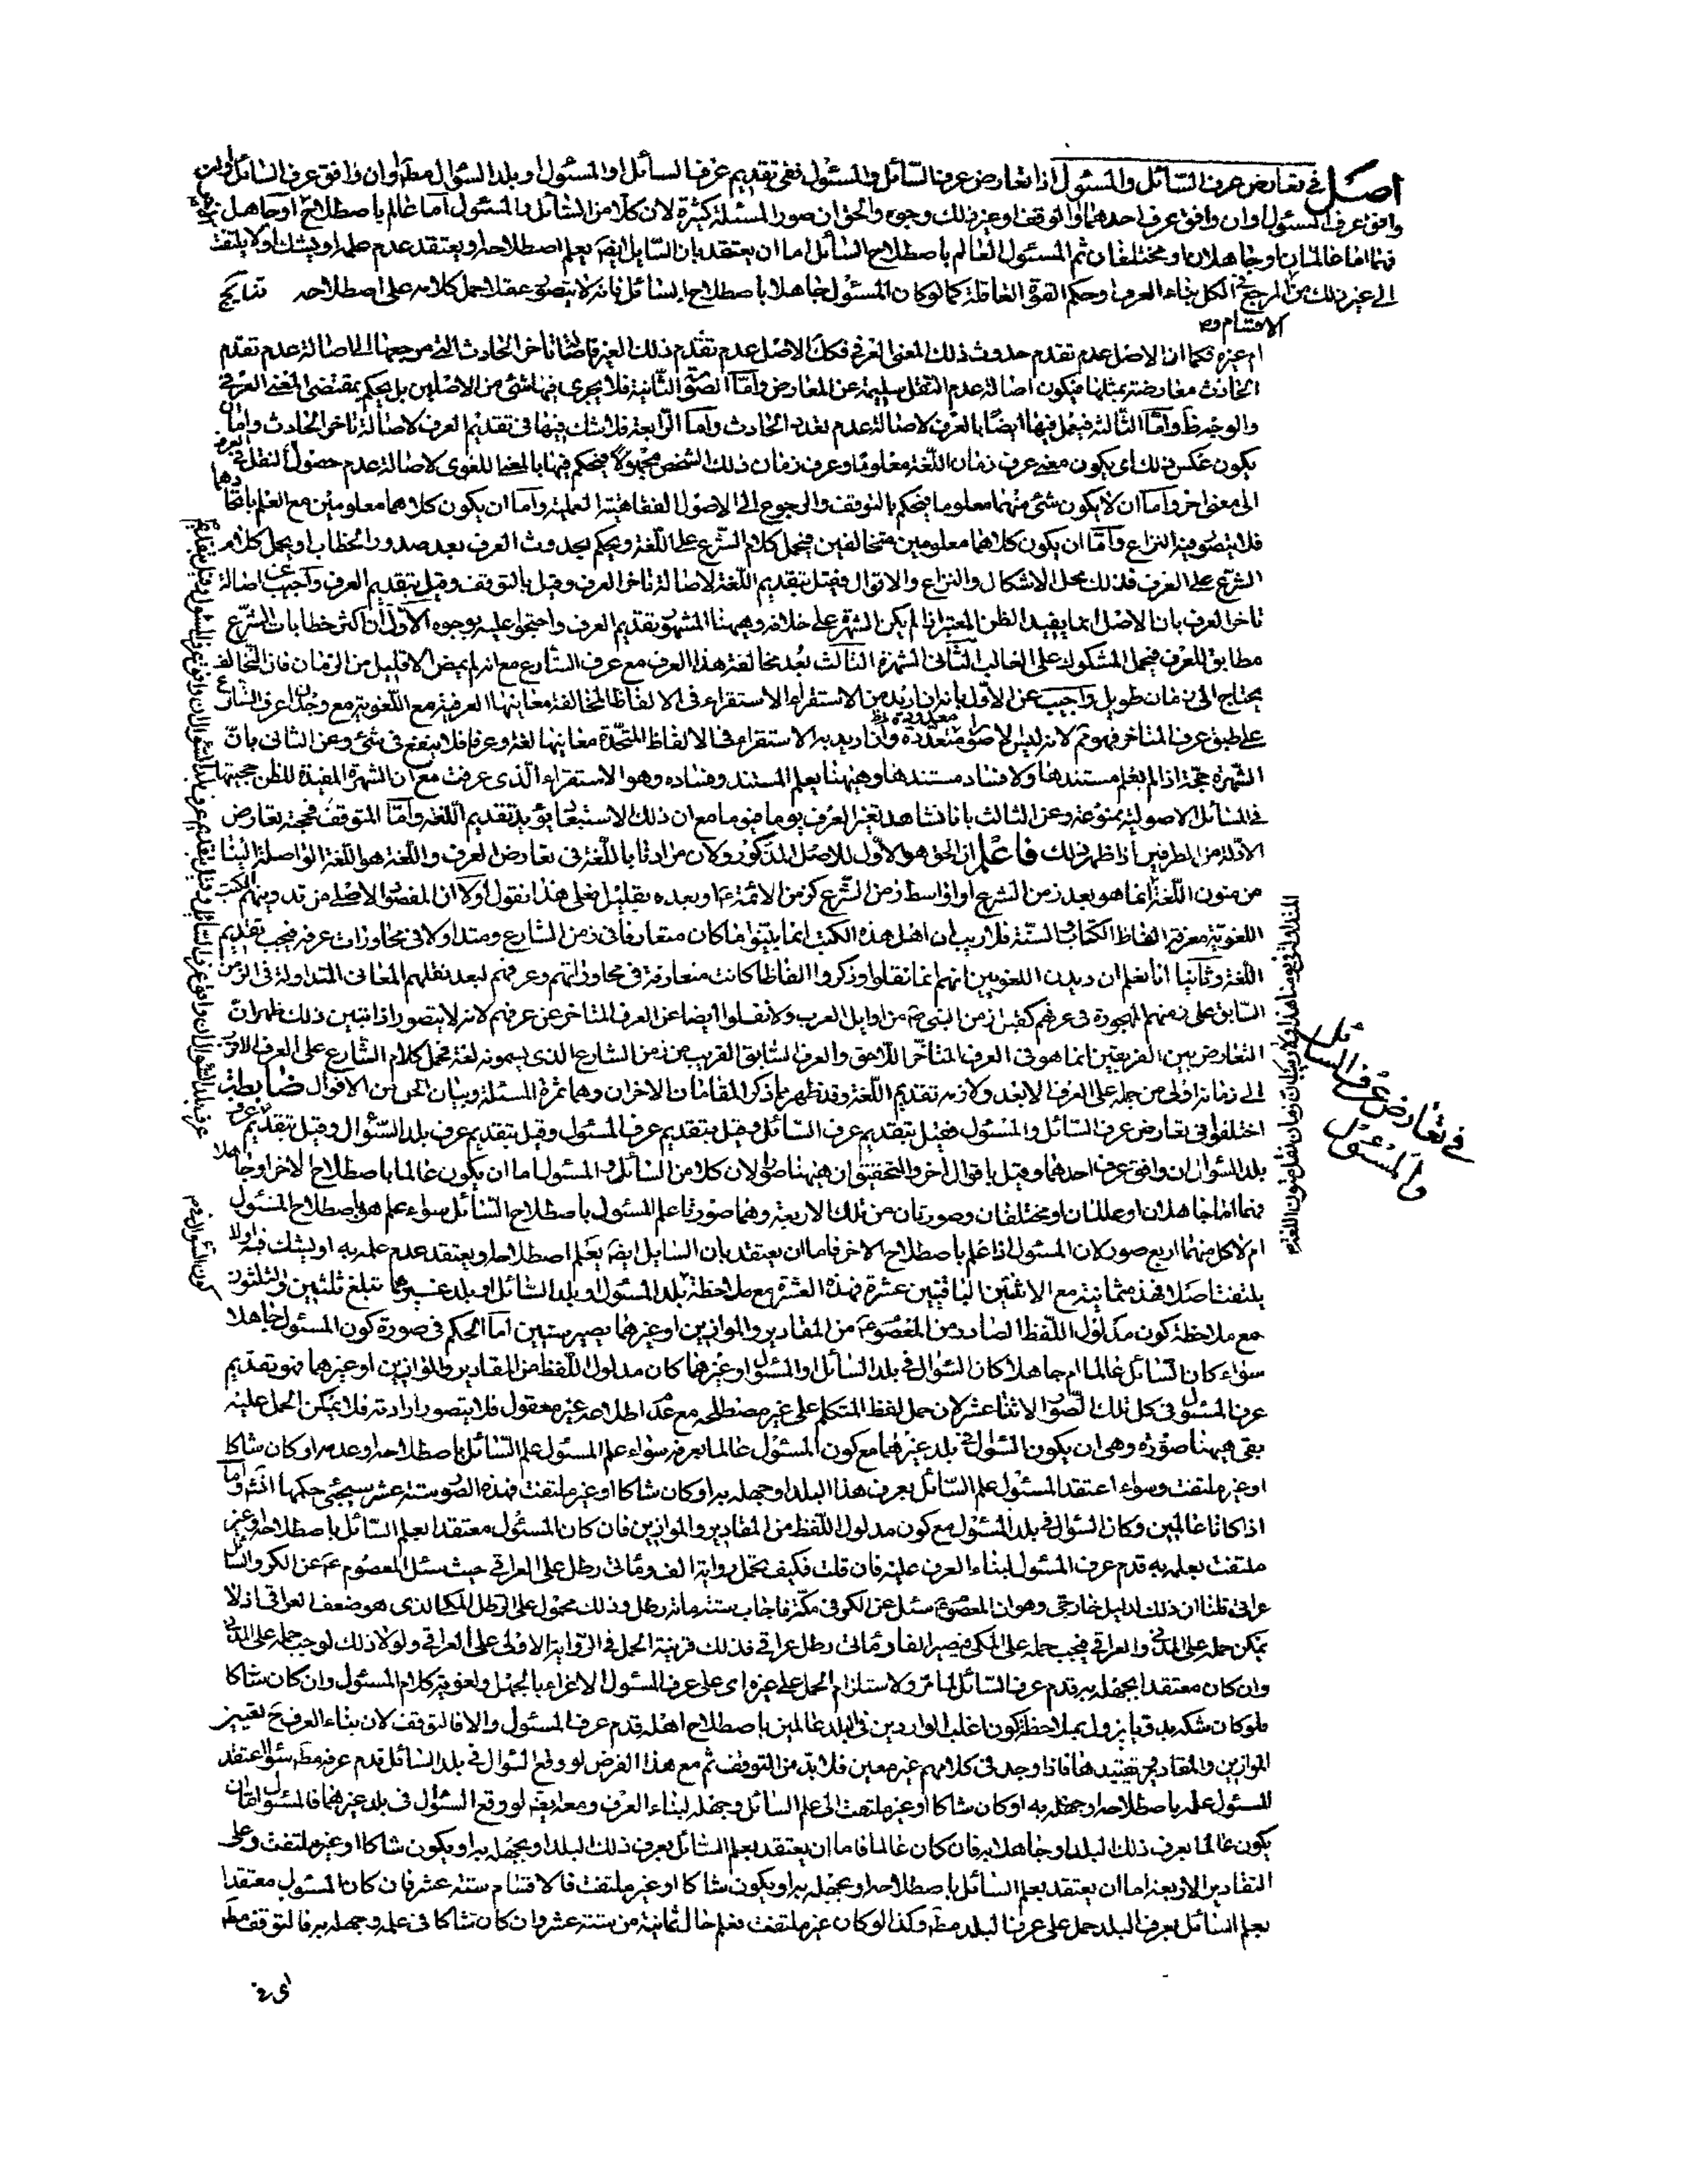 اصل في تعارض عرف السائل والمسئول اذا تعارض عرف السائل والمسئول ففى تقديم عرف السائل او المسئول او بلد السؤال مطلقا وان وافق عرف السائل او ان
وافق عرف المسئول او ان وافق عرف احدهما والوقف او غير ذلك وجوه والحق ان صور المسئلة كثيرة لان كلا من السائل والمسئول اما عالم باصطلاح او جاهل
فهما اما عالمان او جاهلان او مختلفان ثم المسئول العالم باصطلاح السائل اما ان يعتقد بان السايل ايضا يعلم اصطلاحه او يعتقد عدم علمه او يشك او لا يلتفت
الى غير ذلك من المرجع في الكل بناء العرف وحكم القوة العاقلة كما لو كان المسئول جاهلا باصطلاح السائل فانه لا يتصور عقلا حمل كلامه على اصطلاحه
الاقسام
ام غيره فكما ان الاصل عدم تقدم حدوث ذلك المعنى العرفى فكك الاصل عدم تقدم ذلك الغير فاصالة تاخر الحادث التى مرجعها الى اصالة عدم تقدم
الحادث معارضة بمثلها فيكون اصالة عدم النقل سليمة عن المعارض واما الصورة الثانية فلا يجرى فيها شئ من الاصلين بل يحكم بمقتضى المعنى العرفى
والوجه ظ واما الثالثة فيعمل فيها ايضا بالعرف لاصالة عدم تعدد الحادث واما الرابعة فلا شك فيها فى تقديم العرف لاصالة تاخر الحادث واما ان
يكون عكس ذلك اى يكون معنى عرف زمان اللغة معلوما وعرف زمان ذلك الشخص مجهولا فيحكم فيها بالمعنى اللغوى لاصالة عدم حصول النقل فى العرف
الى معنى اخر واما ان لا يكون شئ منهما معلوما فيحكم بالتوقف والرجوع الى الاصول الفقاهية العملية واما ان يكون كلاهما معلومين مع العلم باتحادهما
فلا يتصور فيه النزاع واما ان يكون كلاهما معلومين متخالفين فيحمل كلام الشرع على اللغة ويحكم بحدوث العرف بعد صدور الخطاب او يحمل كلام
الشرع على العرف فذلك محل الاشكال والنزاع والاقوال فقيل بتقديم اللغة لاصالة تاخر العرف وقيل بالتوقف وقيل بتقديم العرف واجيب عن اصالة
تاخر العرف بان الاصل انما يفيد الظن المعتبر اذا لم يكن الشهرة على خلافه وهيهنا المشهور تقديم العرف واحتجوا عليه بوجوه الاول ان اكثر خطابات الشرع
مطابق للعرف فيحمل المشكوك على الغالب الثانى الشهرة الثالث بعد مخالفة هذا العرف مع عرف الشارع مع انه لم يمض الا قليل من الزمان فان التخالف
يحتاج الى زمان طويل واجيب عن الاول بانه ان اريد من الاستقراء الاستقراء فى الالفاظ المخالفة معانيها العرفية مع اللغوية مع وجدان عرف الشارع
على طبق عرف المتاخر فهو ثم لانه ليس لا صور متعددة وان اريد به الاستقراء فى الالفاظ المتحدة معانيها لغة وعرفا فلا ينفع فى شئ وعن الثانى بان
الشهرة حجة اذا لم يعلم مستندها ولا فساد مستندها وهيهنا يعلم المستند وفساده وهو الاستقراء الذى عرفت مع ان الشهرة المفيدة للظن حجيتها
فى المسائل الاصولية ممنوعة وعن الثالث بانا نشاهد تغير العرف يوما فيوما مع ان ذلك الاستبعاد يؤيد تقديم اللغة واما التوقف فحجته تعارض
الادلة من الطرفين اذا ظهر ذلك فاعلم ان الحق هو الاول للاصل المذكور ولان مرادنا باللغة فى تعارض العرف واللغة هو اللغة الواصلة الينا
من متون اللغة انما هو بعد زمن الشرع او اواسط زمن الشرع كزمن الائمة ع او بعده بقليل فعلى هذا نقول اولا ان المقصود الاصلى من تدوينهم الكتب
اللغوية معرفة الفاظ الكتاب والسنة فلا ريب ان اهل هذه الكتب انما يبينوا ما كان متعارفا فى زمن الشارع ومتداولا فى محاورات عرفه فيجب تقديم
اللغة وثانيا انا نعلم ان ديدن اللغويين انهم انما نقلوا وذكروا الفاظا كانت متعارفة فى محاوراتهم وعرفهم لبعد نقلهم المعانى المتداولة فى الزمن
السابق على زمنهم المهجورة فى عرفهم كقبل زمن النبى ص من اوايل العرب ولا نقلوا ايضا عن العرف المتاخر عن عرفهم لانه لا يتصور اذا تبين ذلك ظهر ان
التعارض بين الفريقين انما هو فى العرف المتاخر اللاحق والعرف السابق القريب من زمن الشارع الذى يسمونه لغة فحمل كلام الشارع على العرف الاقرب
الى زمانه اولى من حمله على العرف الابعد ولازمه تقديم اللغة وقد ظهر بما ذكر المقامان الاخران وهما ثمرة المسئلة وبيان الحق من الاقوال ضابطة
اختلفوا فى تعارض عرف السائل والمسئول فقيل بتقديم عرف السائل وقيل بتقديم عرف المسئول وقيل بتقديم عرف بلد السؤال وقيل بتقديم عرف
بلد السؤال ان وافق عرف احدهما وقيل باقوال اخر والتحقيق ان هيهنا صورا لان كلا من السائل والمسئول اما ان يكون عالما باصطلاح الاخر او جاهلا
فهما اما جاهلان او عالمان او مختلفان وصورتان من تلك الاربعة وهما صورتا علم المسئول باصطلاح السائل سواء علم هو باصطلاح المسئول
ام لا كل منهما اربع صور لان المسئول اذا علم باصطلاح الاخر فاما ان يعتقد بان السايل ايضا يعلم اصطلاحه او يعتقد عدم علمه به او يشك فيه او لا
يلتفت اصلا فهذه ثمانية مع الاثنتين الباقيتين عشرة فهذه العشرة مع ملاحظة بلد المسئول او بلد السائل او بلد غيرهما تبلغ ثلثين والثلثون
مع ملاحظة كون مدلول اللفظ الصادر من المعصوم ع من المقادير والموازين او غيرهما يصير ستين اما الحكم فى صورة كون المسئول جاهلا
سواء كان السائل عالما ام جاهلا كان السؤال فى بلد السائل او المسئول او غيرهما كان مدلول اللفظ من المقادير والموازين او غيرهما فهو تقديم
عرف المسئول فى كل تلك الصور الاثنا عشر لان حمل لفظ المتكلم على غير مصطلحه مع عدم اطلاعه غير معقول فلا يتصور ارادته فلا يمكن الحمل عليه
بقى هيهنا صورة وهى ان يكون السؤال فى بلد غيرهما مع كون المسئول عالما بعرفه سواء علم المسئول علم السائل باصطلاحه او عدمه او كان شاكا
او غير ملتفت وسواء اعتقد المسئول علم السائل بعرف هذا البلد او جهله به او كان شاكا او غير ملتفت فهذه الصور ستة عشر سيجئ حكمها انش واما
اذا كانا عالمين وكان السؤال فى بلد المسئول مع كون مدلول اللفظ من المقادير والموازين فان كان المسئول معتقدا بعلم السائل باصطلاحه او غير
ملتفت بعلمه به قدم عرف المسئول لبناء العرف عليه فان قلت فكيف تحمل رواية الف ومائتى رطل على العراقى حيث سئل المعصوم ع عن الكر والسائل
عراقى قلنا ان ذلك لدليل خارجى وهو ان المعصوم ع سئل عن الكر فى مكة فاجاب ستمائة رطل وذلك محمول على الرطل المكى الذى هو ضعف العراقى اذ لا
يمكن حمله على المدنى والعراقى فيجب حمله على المكى فيصير الفا ومائتى رطل عراقى فذلك قرينة الحمل فى الرواية الاولى على العراقى ولولا ذلك لوجب حمله على المدنى
وان كان معتقدا بجهله به قدم عرف السائل لما مر ولاستلزام الحمل على غيره اى على عرف المسئول الاغراء بالجهل ولغوية كلام المسئول وان كان شاكا
فلو كان شكه بدويا يزول بملاحظة كون اغلب الواردين فى البلد عالمين باصطلاح اهله قدم عرف المسئول والا فالتوقف لان بناء العرف ح تعيير
الموازين والمقادير بتقييدها فاذا وجد فى كلامهم غير معين فلا بد من التوقف ثم مع هذا الفرض لو وقع السؤال فى بلد السائل قدم عرفه مط سواء اعتقد
المسئول علمه باصطلاحه او جهله به او كان شاكا او غير ملتفت الى علم السائل وجهله لبناء العرف ومعه ايضا لو وقع السؤال فى بلد غيرهما فالمسئول اما ان
يكون عالما بعرف ذلك البلد او جاهلا به فان كان عالما فاما ان يعتقد بعلم السائل بعرف ذلك البلد او بجهله به او يكون شاكا او غير ملتفت وعلى
التقادير الاربعة اما ان يعتقد بعلم السائل باصطلاحه او بجهله به او يكون شاكا او غير ملتفت فالاقسام ستة عشر فان كان المسئول معتقدا
بعلم السائل بعرف البلد حمل على عرف البلد مط وكذا لو كان غير ملتفت فعلم حال ثمانية من ستة عشر وان كان شاكا فى علمه وجهله به فالتوقف مط
في تعارض عرف السائل
والمسئول